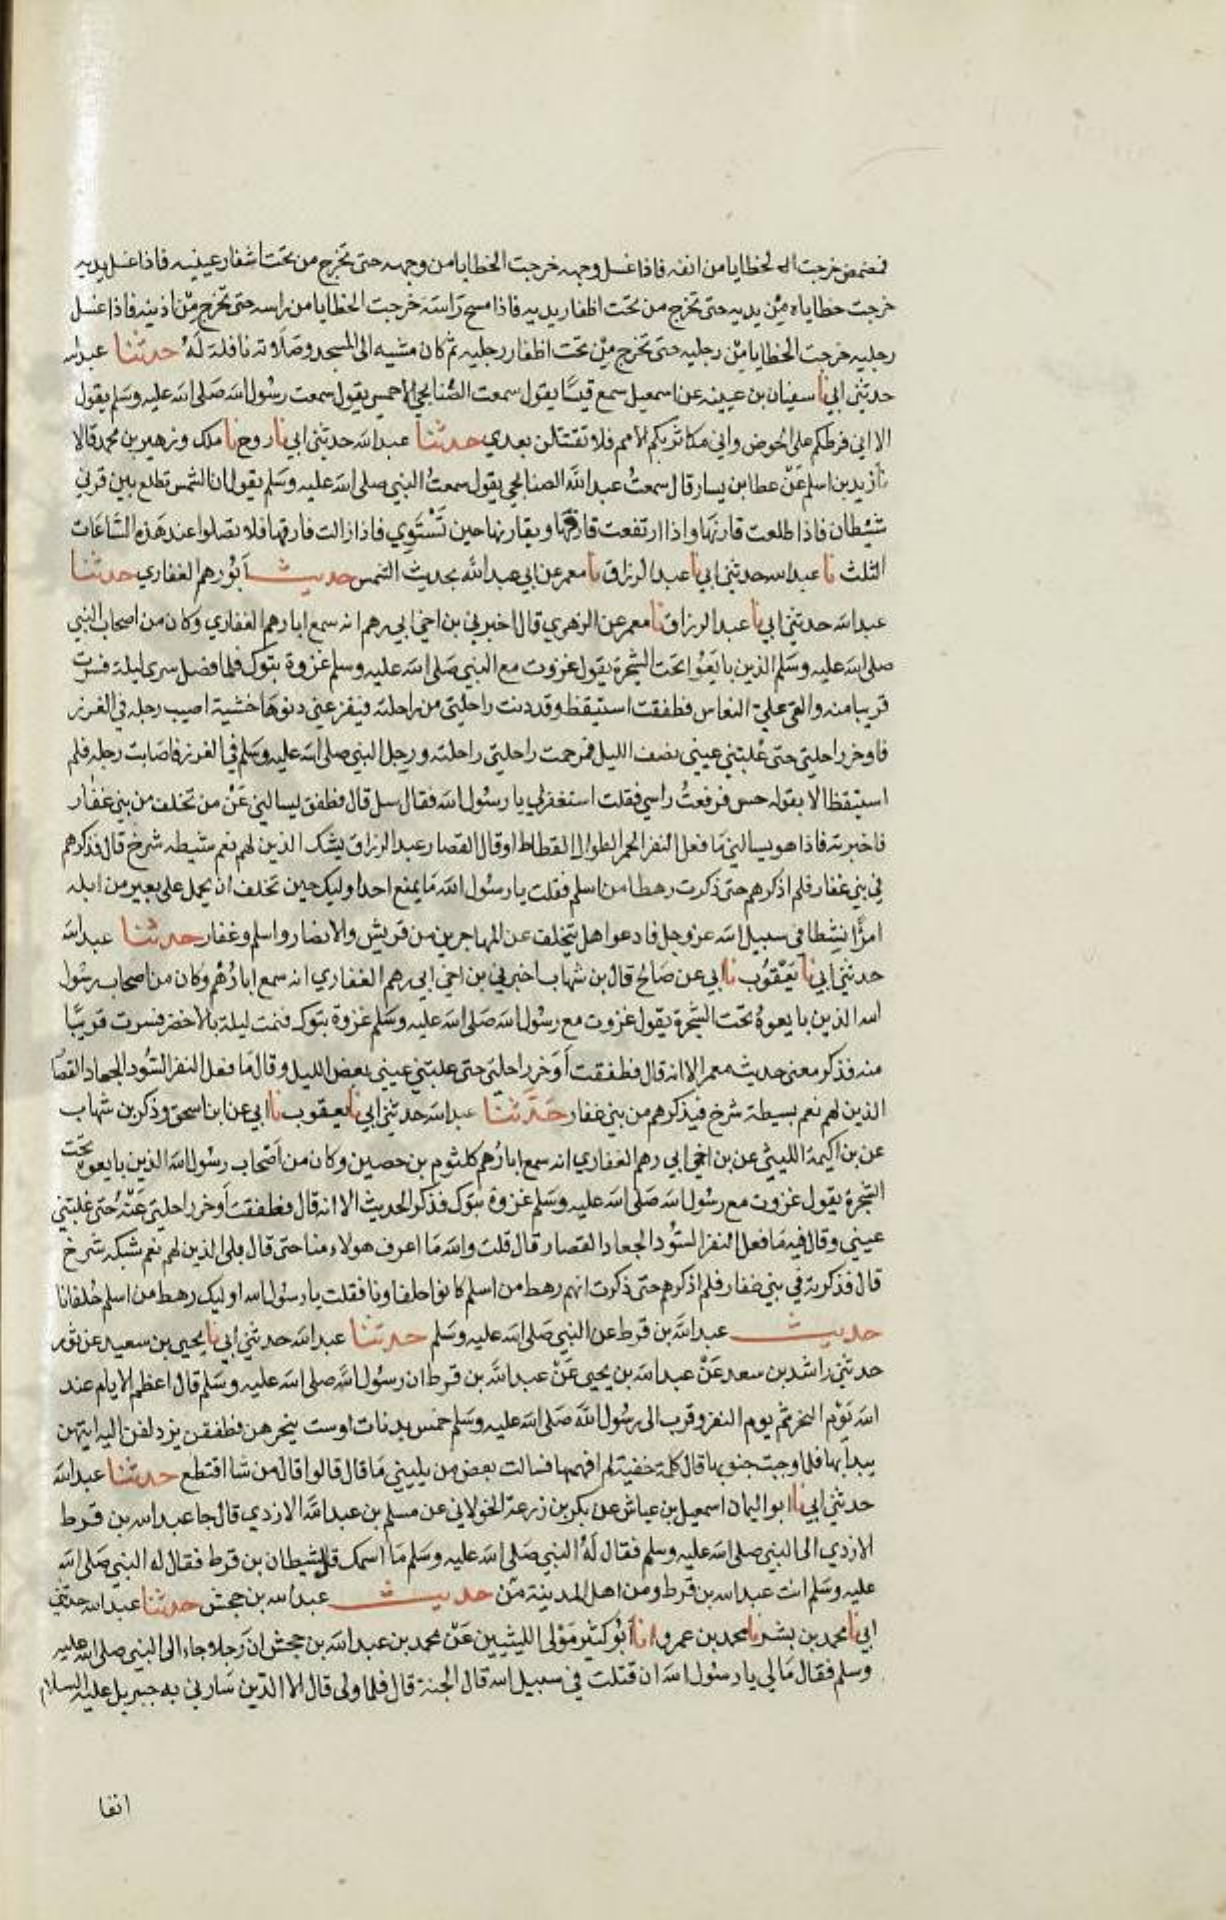 فمضمض خرجت الخطايا من انفه فاذا غسل وجهه خرجت الخطايا من وجهه حتى تخرج من تحت اشفار عينيه فاذا غسل يديه
خرجت خطاياه من يديه حتى تخرج من تحت اظفار يديه فاذا مسح راسه خرجت الخطايا من راسه حتى تخرج من اذنيه فاذا غسل
رجليه خرجت الخطايا من رجليه حتى تخرج من تحت اظفار رجليه ثم كان مشيه الى المسجد وصلاته نافلة له حدثنا عبد الله
حدثني ابي نا سفيان بن عيينه عن اسمعيل سمع قيسا يقول سمعت الصنابحي الاحمسي يقول سمعت رسول الله صلى الله عليه وسلم يقول
الا اني فرطكم على الحوض واني مكاثر بكم الامم فلا تقتتلن بعدي حدثنا عبد الله حدثني ابي نا روح نا ملك وزهير بن محمد قالا
نا زيد بن اسلم عن عطا بن يسار قال سمعت عبد الله الصنابحي يقول سمعت النبي صلى الله عليه وسلم يقول ان الشمس تطلع بين قرني
شيطان فاذا طلعت قارنها واذا ارتفعت فارقها ويقارنها حين تستوي فاذا زالت فارقها فلا تصلوا عند هذه الساعات
الثلث نا عبد الله حدثني ابي نا عبد الرزاق نا معمر عن ابي عبد الله بحديث الشمس حديث ابو رهم الغفاري حدثنا
عبد الله حدثني ابي نا عبد الرزاق نا معمر عن الزهري قال اخبرني بن اخي ابي رهم انه سمع ابا رهم الغفاري وكان من اصحاب النبي
صلى الله عليه وسلم الذين بايعوا تحت الشجرة يقول غزوت مع النبي صلى الله عليه وسلم غزوة تبوك فلما فصل سرى ليلة فسرت
قريبا منه والقي علي النعاس فطفقت استيقظ وقد دنت راحلتي من راحلته فيفزعني دنوها خشية اصيب رجله في الغرز
فاوخر راحلتي حتى غلبتني عيني نصف الليل فزحمت راحلتي راحلته ورجل النبي صلى الله عليه وسلم في الغرز فاصابت رجله فلم
استيقظ الا بقوله حس فرفعت راسي فقلت استغفر لي يا رسول الله فقال سل قال فطفق يسالني عن من تخلف من بني غفار
فاخبرته فاذا هو يسالني ما فعل النفر الحمر الطوال القطاط او قال القصار عبد الرزاق يشك الذين لهم نعم بشيطه شرخ قال فذكرهم
في بني غفار فلم اذكرهم حتى ذكرت رهطا من اسلم فقلت يا رسول الله ما يمنع احد اوليك حين تخلف ان يحمل على بعير من ابله
امرا نشطا في سبيل الله عز وجل فادعوا هل يتخلف عن المهاجرين من قريش والانصار واسلم وغفار حدثنا عبد الله
حدثني ابي نا يعقوب نا ابي عن صالح قال بن شهاب اخبرني بن اخي ابي رهم الغفاري انه سمع ابا رهم وكان من اصحاب رسول
الله الذين بايعوه تحت الشجرة يقول غزوت مع رسول الله صلى الله عليه وسلم غزوة تبوك فنمت ليلة بالاخضر فسرت قريبا
منه فذكر معنى حديث معمر الا انه قال فطفقت أوخر راحلتي حتى غلبتني عيني بعض الليل وقال ما فعل النفر السود الجعاد القصا
الذين لهم نعم بسيطة شرخ فيذكرهم من بني غفار حدثنا عبد الله حدثني ابي نا يعقوب نا ابي عن ابن اسحق وذكر بن شهاب
عن بن اكيمة الليثي عن بن اخي ابي رهم الغفاري انه سمع ابا رهم كلثوم بن حصين وكان من اصحاب رسول الله الذين بايعوه تحت
الشجرة يقول غزوت مع رسول الله صلى الله عليه وسلم غزوة تبوك فذكر الحديث الا انه قال فطفقت أوخر راحلتي عنه حتى غلبتني
عيني وقال فيه ما فعل النفر السود الجعاد القصار قال قلت والله ما اعرف هولاء منا حتى قال بلى الذين لهم نعم شبكه شرخ
قال فذكرته في بني غفار فلم اذكرهم حتى ذكرت انهم رهط من اسلم كانوا حلفا ونا فقلت يا رسول الله اوليك رهط من اسلم حلفانا
حديث عبد الله بن قرط عن النبي صلى الله عليه وسلم حدثنا عبد الله حدثني ابي نا يحيى بن سعيد عن ثور
حدثني راشد بن سعد عن عبد الله بن يحيى عن عبد الله بن قرط ان رسول الله صلى الله عليه وسلم قال اعظم الايام عند
الله يوم النحر ثم يوم النفر وقرب الى رسول الله صلى الله عليه وسلم خمس بدنات او ست ينحرهن فطفقن يزدلفن اليه ايتهن
يبدا بها فلما وجبت جنوبها قال كلمة خفية لم افهمها فسالت بعض من يليني ما قال قالوا قال من شا اقتطع حدثنا عبد الله
حدثني ابي نا ابو اليمان اسمعيل بن عياش عن بكر بن زرعة الخولاني عن مسلم بن عبد الله الازدي قال جا عبد الله بن قرط
الازدي الى النبي صلى الله عليه وسلم فقال له النبي صلى الله عليه وسلم ما اسمك قال شيطان بن قرط فقال له النبي صلى الله
عليه وسلم انت عبد الله بن قرط ومن اهل المدينة من حديث عبد الله بن جحش حدثنا عبد الله حدثني
ابي نا محمد بن بشر نا محمد بن عمرو انا ابو كثير مولى الليثيين عن محمد بن عبد الله بن جحش ان رجلا جاء الى النبي صلى الله عليه
وسلم فقال ما لي يا رسول الله ان قتلت في سبيل الله قال الجنة قال فلما ولى قال الا الدين سارني به جبريل عليه السلام
انفا